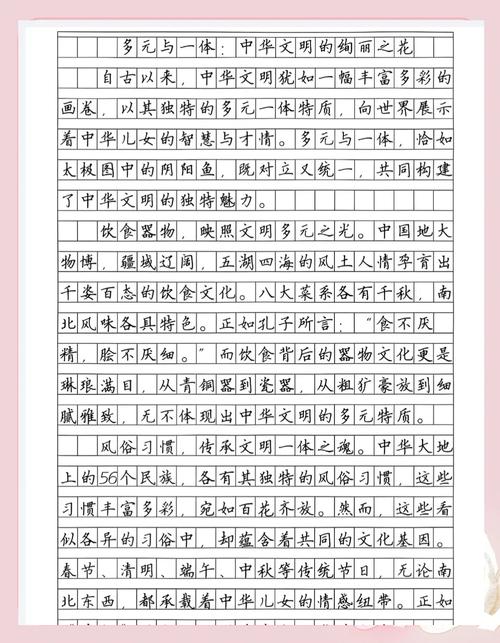 多元与一体：中华文明的绚丽之花
自古以来，中华文明犹如一幅丰富多彩的
画卷，以其独特的多元一体特质，向世界展示
着中华儿女的智慧与才情。多元与一体，恰如
太极图中的阴阳鱼，既对立又统一，共同构建
了中华文明的独特魅力。
饮食器物，映照文明多元之光。中国地大
物博，疆域辽阔，五湖四海的风土人情孕育出
千姿百态的饮食文化。八大菜系各有千秋，南
北风味各具特色。正如孔子所言："食不厌
精，脍不厌细。"而饮食背后的器物文化更是
琳琅满目，从青铜器到瓷器，从粗犷豪放到细
腻雅致，无不体现出中华文明的多元特质。
风俗习惯，传承文明一体之魂。中华大地
上的56个民族，各有其独特的风俗习惯，这些
习惯丰富多彩，宛如百花齐放。然而，这些看
似各异的习俗中，却蕴含着共同的文化基因。
春节、清明、端午、中秋等传统节日，无论南
北东西，都承载着中华儿女的情感纽带。正如